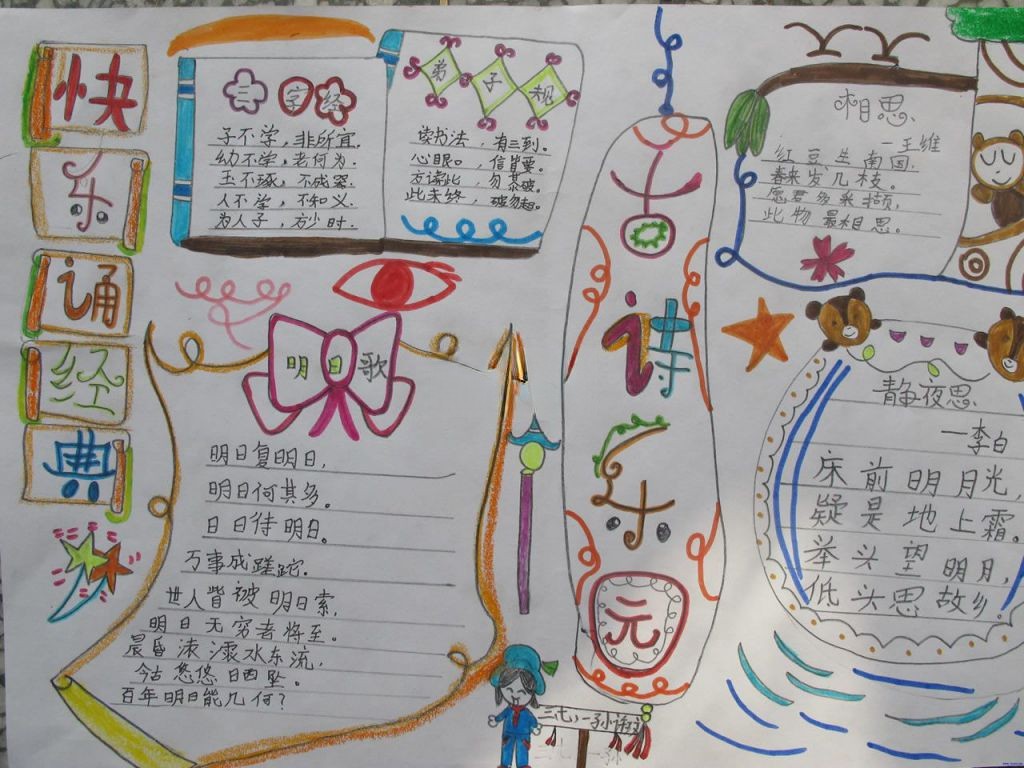 快
乐
诵
经
典
三字经
子不学,非所宜.
幼不学,老何为.
玉不琢,不成器.
人不学,不知义.
为人子,方少时.
弟子规
读书法,有三到。
心眼口,信皆要。
方读此,勿慕彼。
此未终,彼勿起。
明日歌
明日复明日,
明日何其多。
日日待明日。
万事成蹉跎.
世人皆被明日累.
明日无穷者将至。
晨昏滚滚水东流,
今古悠悠日西坠。
百年明日能几何?
古
诗
乐
元
相思
—王维
红豆生南国.
春来发几枝。
愿君多采撷,
此物最相思。
静夜思
—李白
床前明月光,
疑是地上霜。
举头望明月,
低头思故乡。